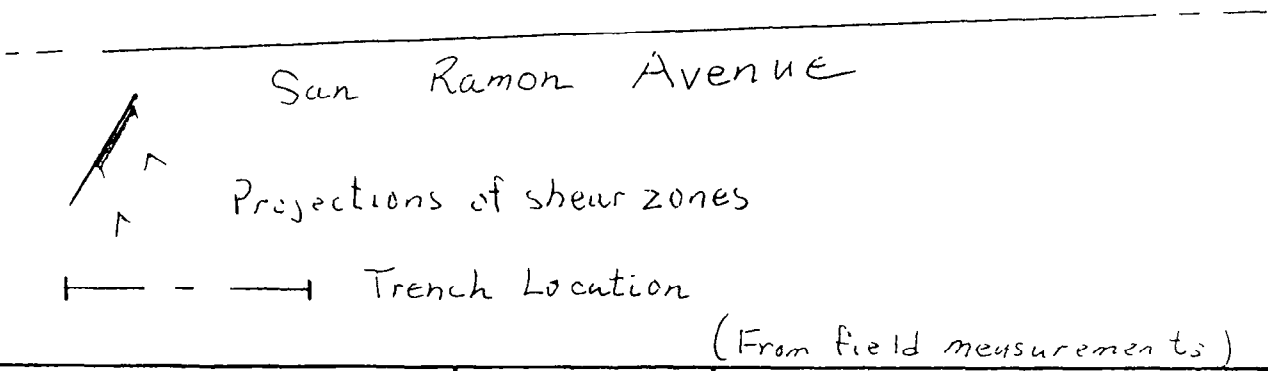 San Ramon Avenue
Projections of shear zones
Trench Location
(From field measurements)